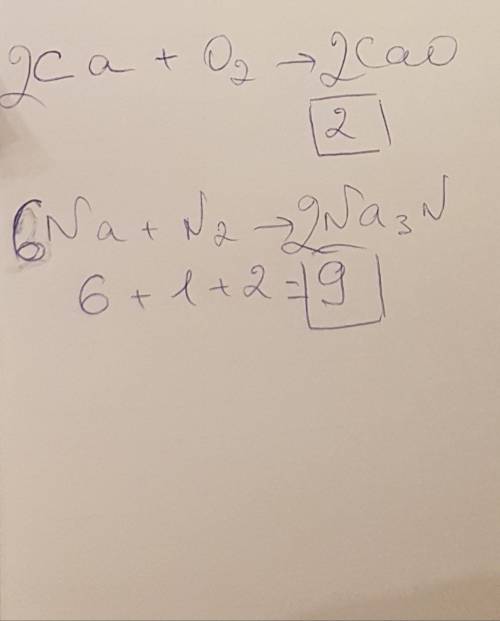 2Ca + O₂ → 2CaO
2
6Na + N₂ → 2Na₃N
6 + 1 + 2 = 9